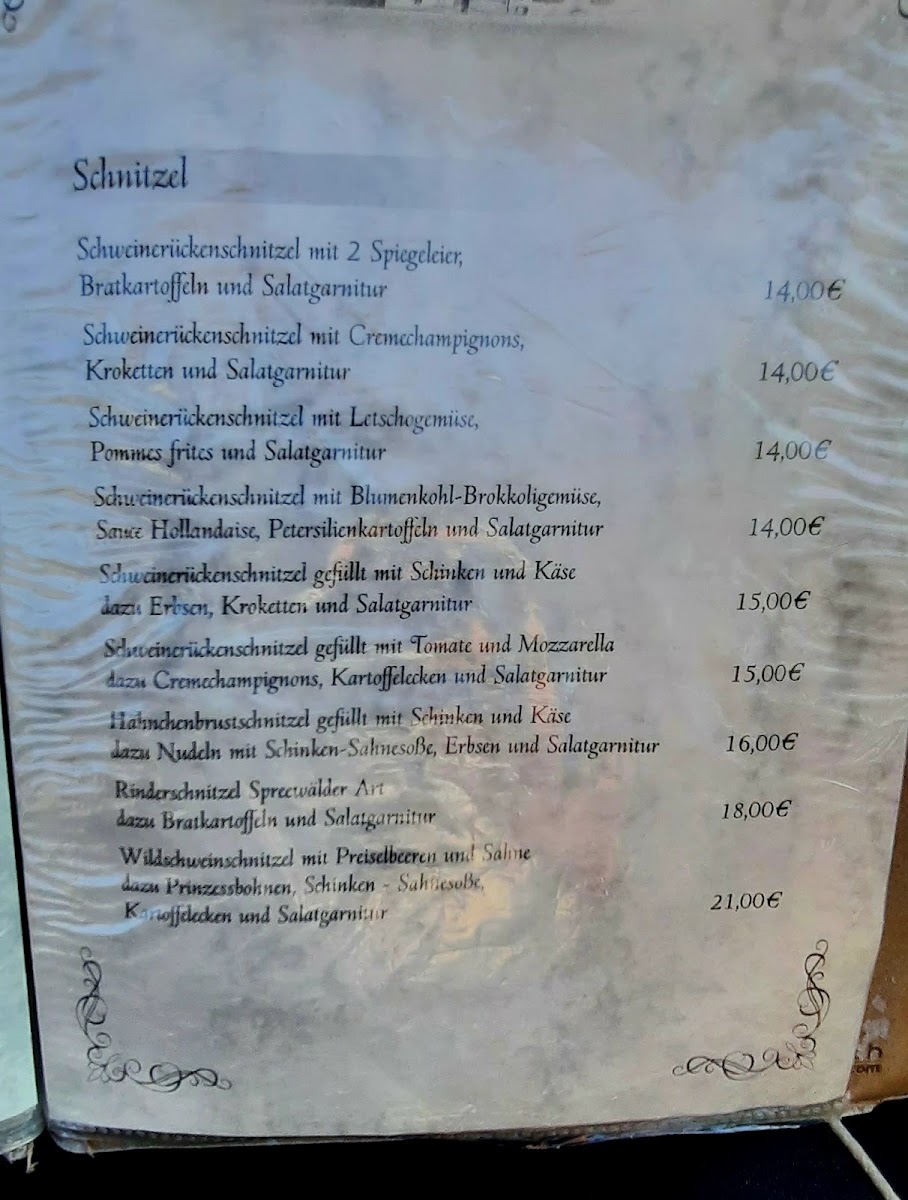 Schnitzel
Schweinerückenschnitzel mit 2 Spiegeleier,
Bratkartoffeln und Salatgarnitur 14,00€
Schweinerückenschnitzel mit Cremechampignons,
Kroketten und Salatgarnitur 14,00€
Schweinerückenschnitzel mit Letschogemüse,
Pommes frites und Salatgarnitur 14,00€
Schweinerückenschnitzel mit Blumenkohl-Brokkoligemüse,
Sauce Hollandaise, Petersilienkartoffeln und Salatgarnitur 14,00€
Schweinerückenschnitzel gefüllt mit Schinken und Käse
dazu Erbsen, Kroketten und Salatgarnitur 15,00€
Schweinerückenschnitzel gefüllt mit Tomate und Mozzarella
dazu Cremechampignons, Kartoffelecken und Salatgarnitur 15,00€
Hähnchenbrustschnitzel gefüllt mit Schinken und Käse
dazu Nudeln mit Schinken-Sahnesoße, Erbsen und Salatgarnitur 16,00€
Rinderschnitzel Spreewälder Art
dazu Bratkartoffeln und Salatgarnitur 18,00€
Wildschweinschnitzel mit Preiselbeeren und Sahne
dazu Prinzessbohnen, Schinken - Sahnesoße,
Kartoffelecken und Salatgarnitur 21,00€